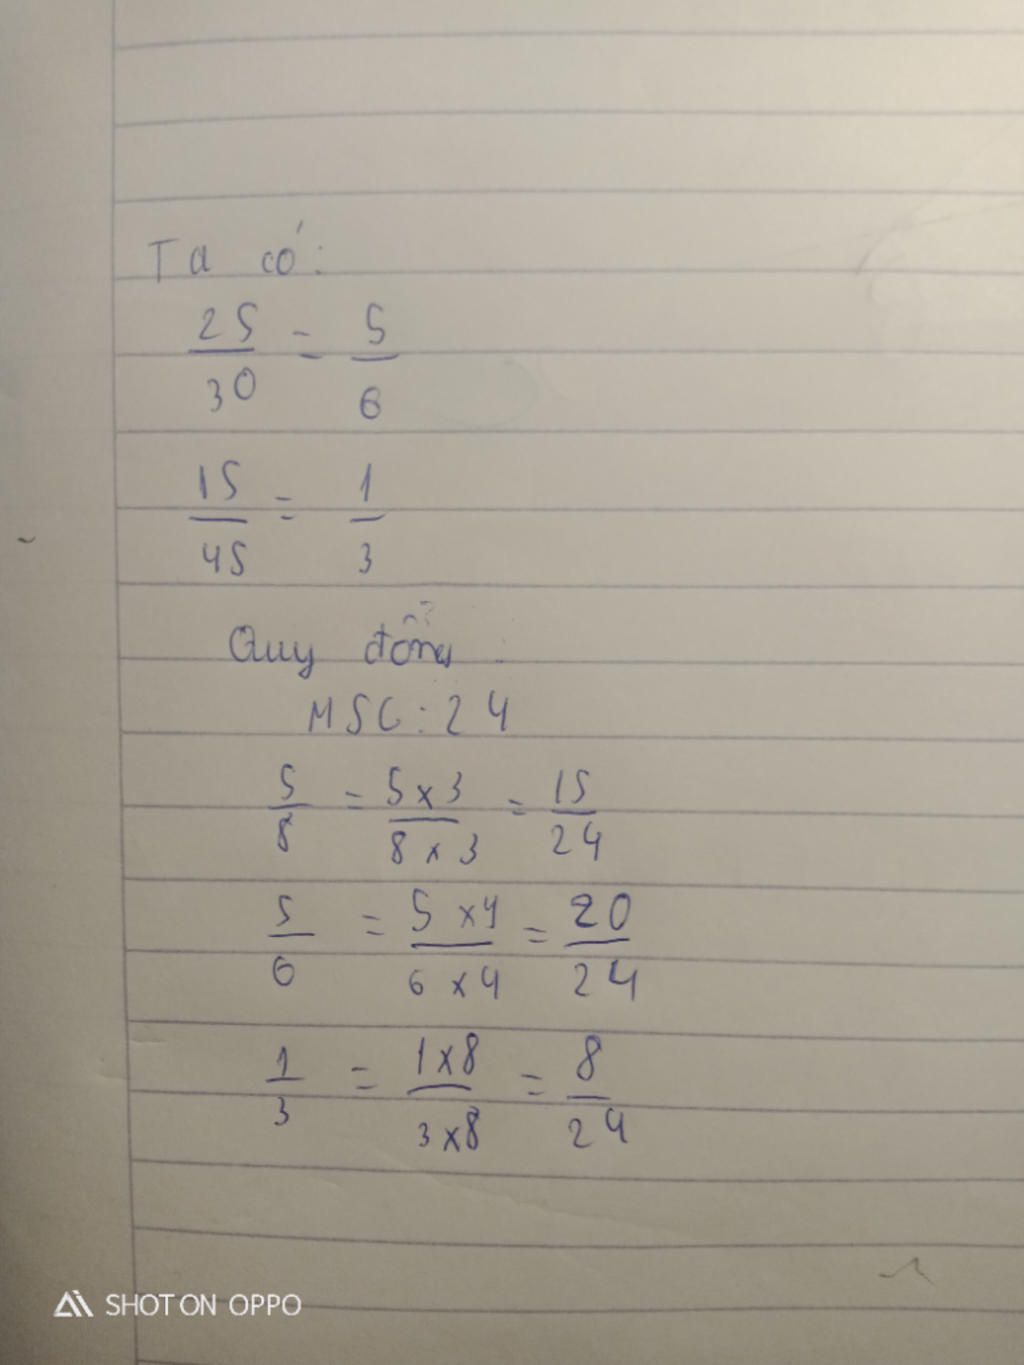 Ta có:
25/30 = 5/6
15/45 = 1/3
Quy đồng :
MSC: 24
5/8 = 5 x 3 / 8 x 3 = 15/24
5/6 = 5 x 4 / 6 x 4 = 20/24
1/3 = 1 x 8 / 3 x 8 = 8/24
SHOT ON OPPO